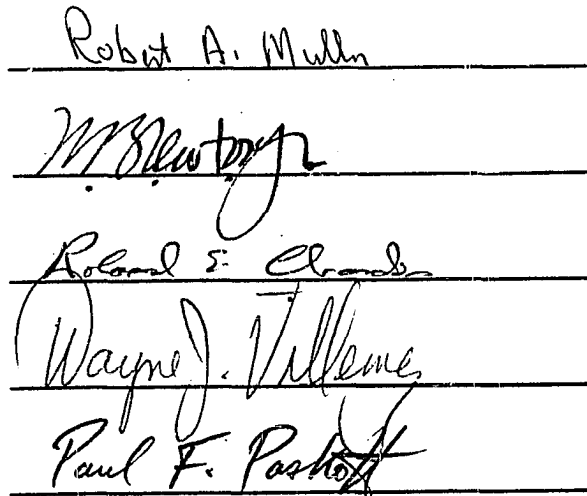 Robert A. Muller
M. B. Newton Jr
Roland E. Chardon
Wayne J. Villemez
Paul F. Paskoff